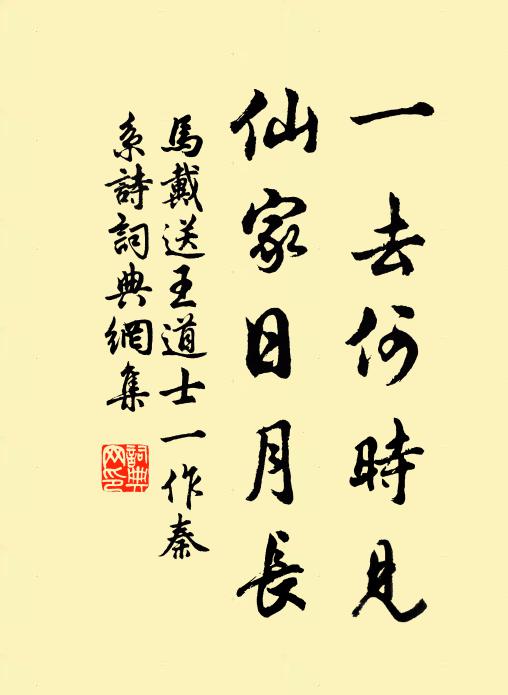 一去何時見
仙家日月長
馬戴送王道士一作秦
系詩詞典網集
詞典
网印